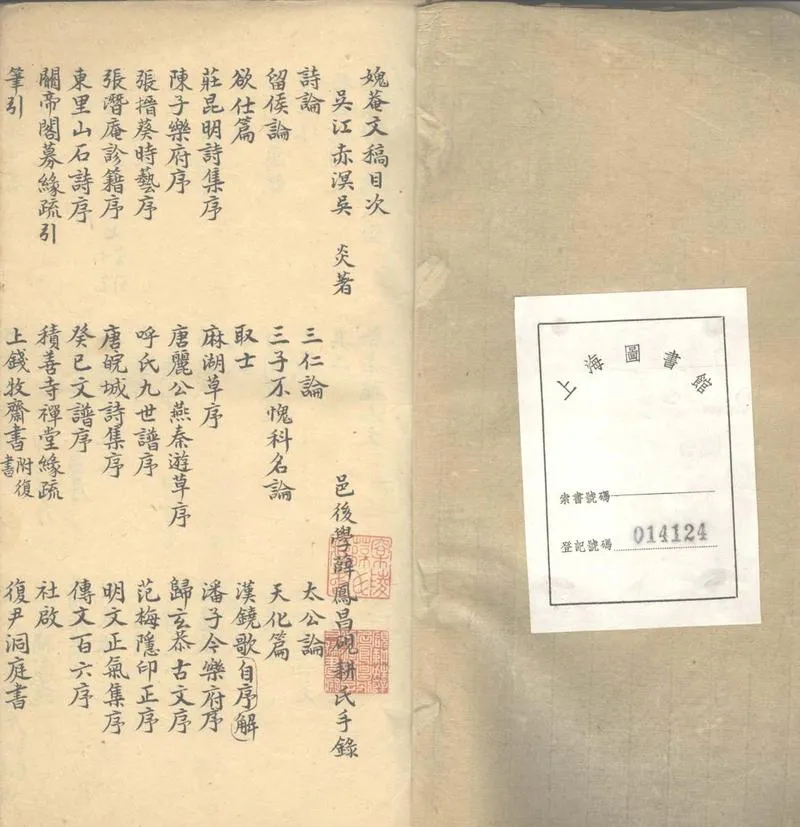 媿菴文稿目次
吳江赤溟吳 炎著 邑後學薛鳳昌硯耕氏手錄
詩論 三仁論 太公論
留侯論 三子不愧科名論 天化篇
欲仕篇 取士 漢鐃歌自序解
莊昆明詩集序 麻湖草序 潘子令樂府序
陳子樂府序 唐麗公燕秦遊草序 歸玄恭古文序
張搢葵時藝序 呼氏九世譜序 范梅隱印正序
張潛庵診籍序 唐皖城詩集序 明文正氣集序
東里山石詩序 癸巳文譜序 傳文百六序
關帝閣募緣疏引 積善寺禪堂緣疏 社啟
筆引 上錢牧齋書附復書 復尹洞庭書
上海圖書館
索書號碼
登記號碼 014124